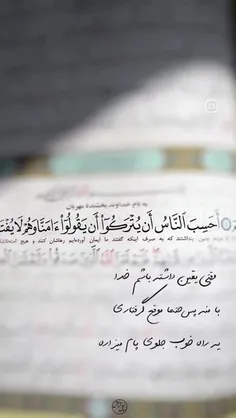 به نام خداوند بخشندهٔ مهربان
أَحَسِبَ ٱلنَّاسُ أَن يُتْرَكُوٓا۟ أَن يَقُولُوٓا۟ ءَامَنَّا وَهُمْ لَا يُفْتَ
پنداشتند که به صرف اینکه گفتند ما ایمان آورده‌ایم رهاشان کنند و هیچ امتحانشان
وقتی یقین داشته باشم خدا
با منه پس حتما موقع گرفتاری
یه راه خوب جلوی پام میزاره